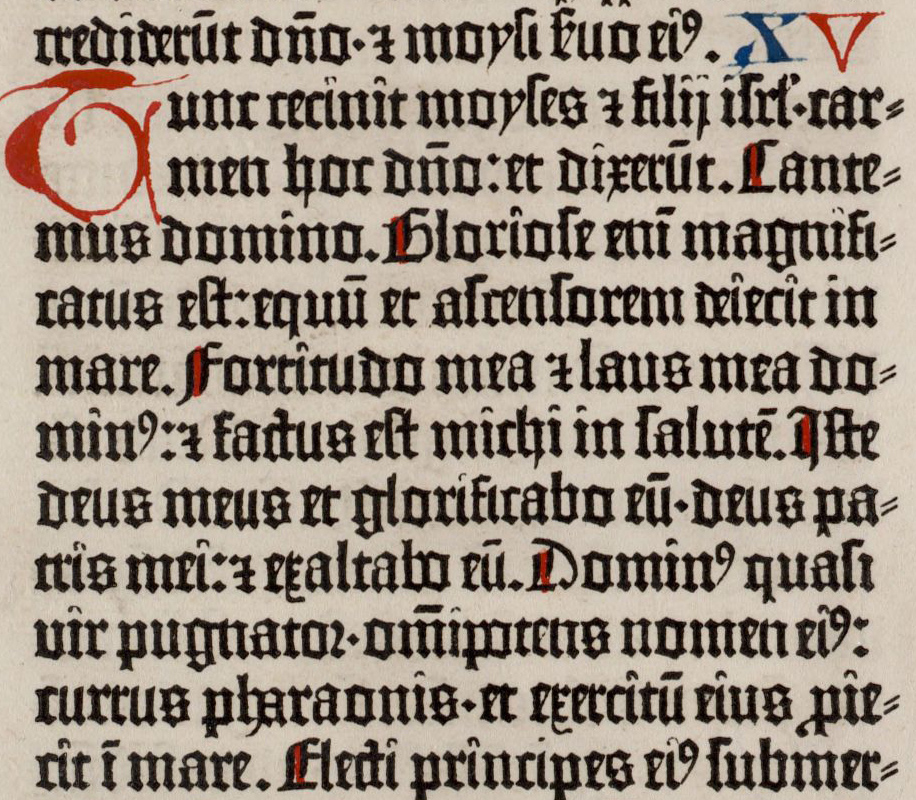 crediderūt dn̄o·⁊ moysi ẜuo ei⁹. XV
Tunc cecinit moyses ⁊ filij isrl̓·car⸗
men hoc dn̄o:et dixerūt. Cante⸗
mus domino. Gloriose eni̅ magnifi⸗
catus est:equū et ascensorem deiecit in
mare. Fortitudo mea ⁊ laus mea do⸗
min⁹:⁊ factus est michi in salutē. Iste
deus meus et glorificabo eū·deus pa⸗
tris mei:⁊ exaltabo eū. Domin⁹ quasi
vir pugnator·om̄ipotens nomen ei⁹:
currus pharaonis·et exercitū eius ꝓie⸗
cit ī mare. Electi principes ei⁹ submer⸗